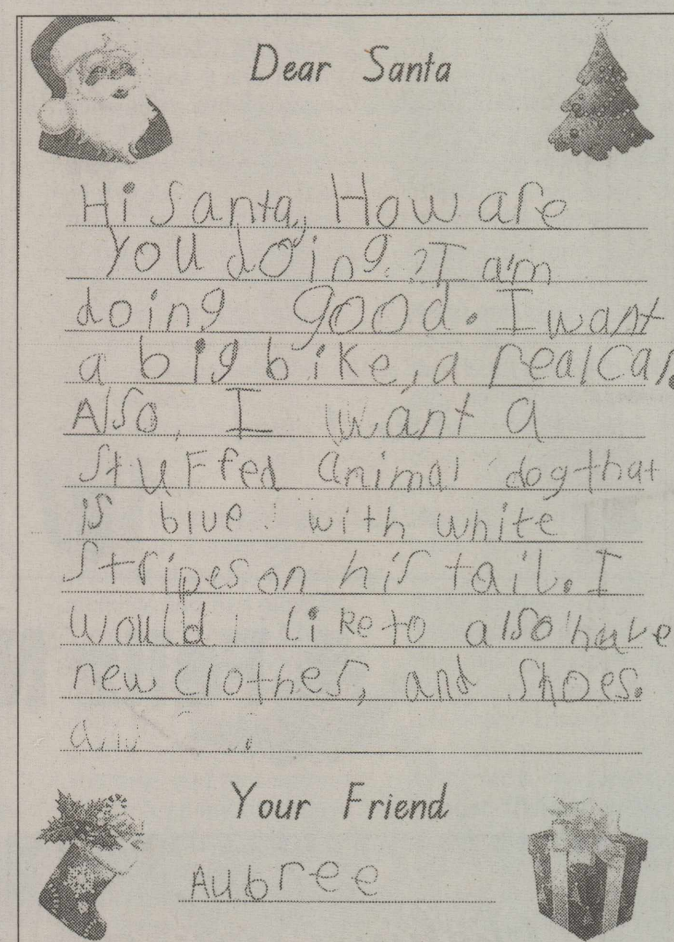 Dear Santa
Hi Santa, How are
you doing? I am
doing good. I want
a big bike, a real car.
Also, I want a
stuffed animal dog that
is blue with white
stripes on his tail. I
would like to also have
new clothes, and shoes.
Your Friend
Aubree